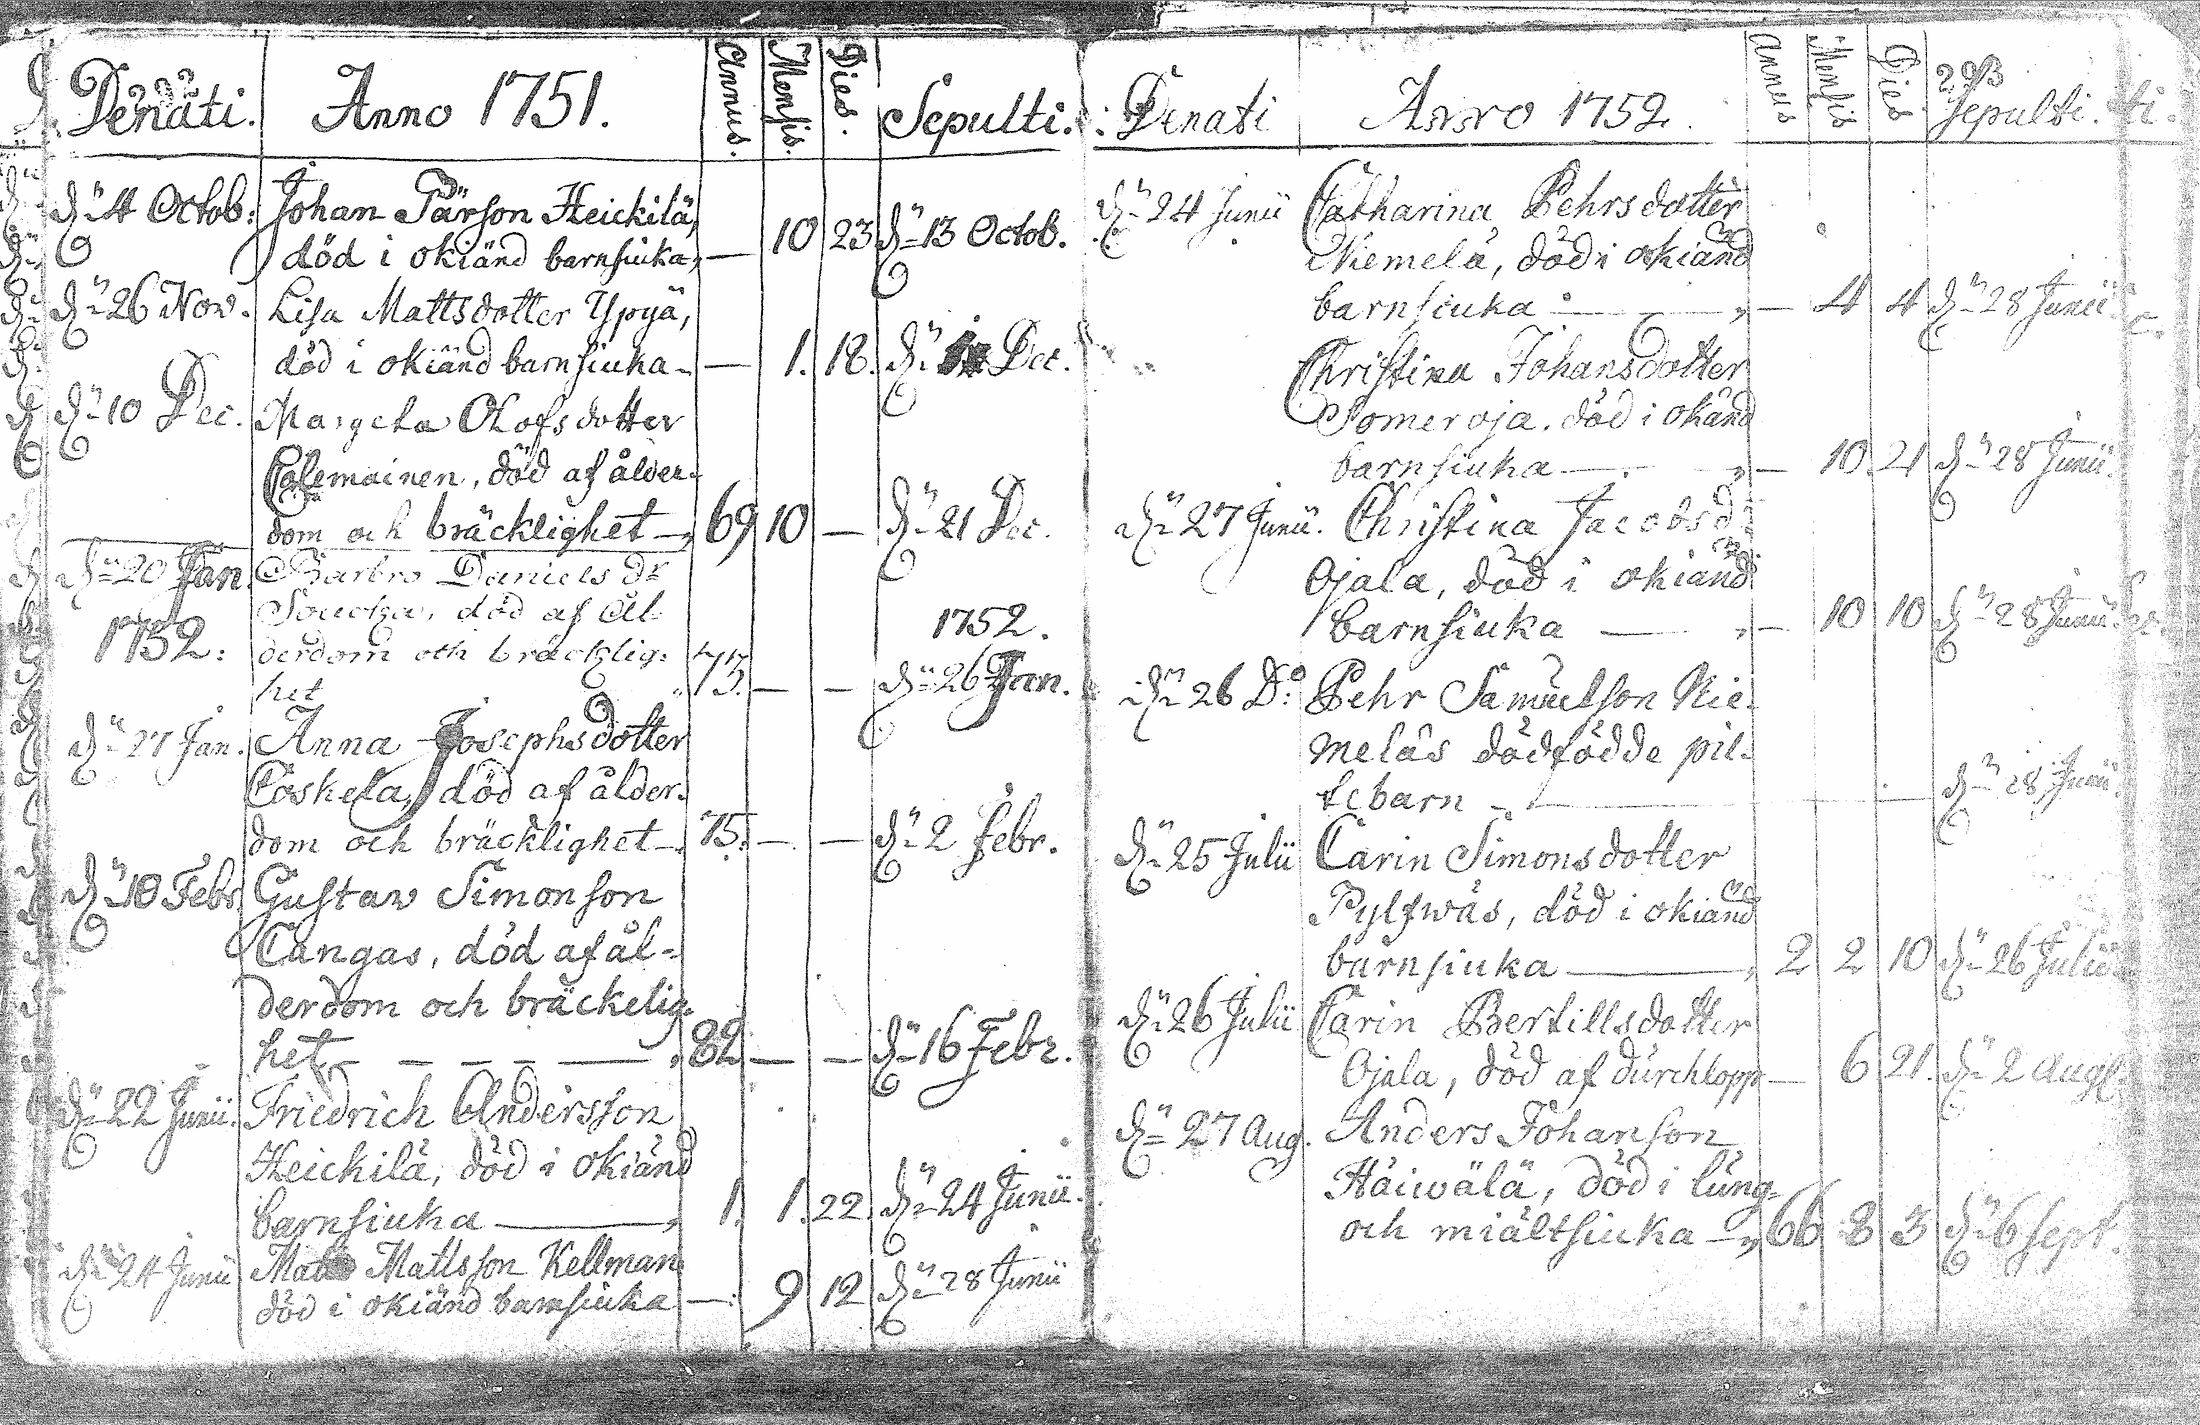 Denati. Anno 1751. Annus. Mensis. Dies. Sepulti.
dn 4 Octob: Johan Pärson Heickilä,
död i okiänd barnsiuka, — 10 23 dn 13 Octob.
dn 26 Nov. Lisa Mattsdotter Ypyä,
död i okiänd barnsiuka — 1. 18. dn Dec.
dn 10 Dec. Margeta Olofsdotter
död af ålder-
dom och bräcklighet — 69 10 — dn 21 Dec.
dn 20 Jan. Barbro Daniels dr
död af ål-
1752: derdom och bräcklig-
het 73. — — 1752. dn 26 Jan.
dn 27 Jan. Anna Josephsdotter
Coskela, död af ålder-
dom och bräcklighet — 75. — — dn 2 Febr.
dn 10 Febr. Gustaw Simonson
Cangas, död af ål-
derdom och bräckelig-
het — — — — 82 — — dn 16 Febr.
dn 22 Junii. Friedrich Andersson
Heickilä, död i okiänd
barnsiuka — 1. 1. 22 dn 24 Junii.
dn 24 Junii Matts Mattsson Kellman
död i okiänd barnsiuka — 9 12 dn 28 Junii
Denati Anno 1752. Annus Mensis Dies 293 Sepulti.
dn 24 Junii Catharina Pehrsdotter
Niemelä, död i okiänd
barnsiuka — — 4 4 dn 28 Junii
Christina Johansdotter
Someroja. död i okänd
barnsiuka — — 10. 21 dn 28 Junii.
dn 27 Junii. Christina Jacobs dr
Ojala, död i okiänd
barnsiuka — — 10 10 dn 28 Junii.
dn 26 Do: Pehr Samuelson Nie-
meläs dödfödde pil-
tebarn — dn 28 Junii.
dn 25 Julii Carin Simonsdotter
Pylfwäs, död i okiänd
barnsiuka — 2 2 10 dn 26 Julii
dn 26 Julii Carin Bertillsdotter
Ojala, död af durchlopp — 6 21. dn 2 Aug.
dn 27 Aug. Anders Johanson
Häiwälä, död i lung-
och miältsiuka — 66 8 3 dn 6 Sept.